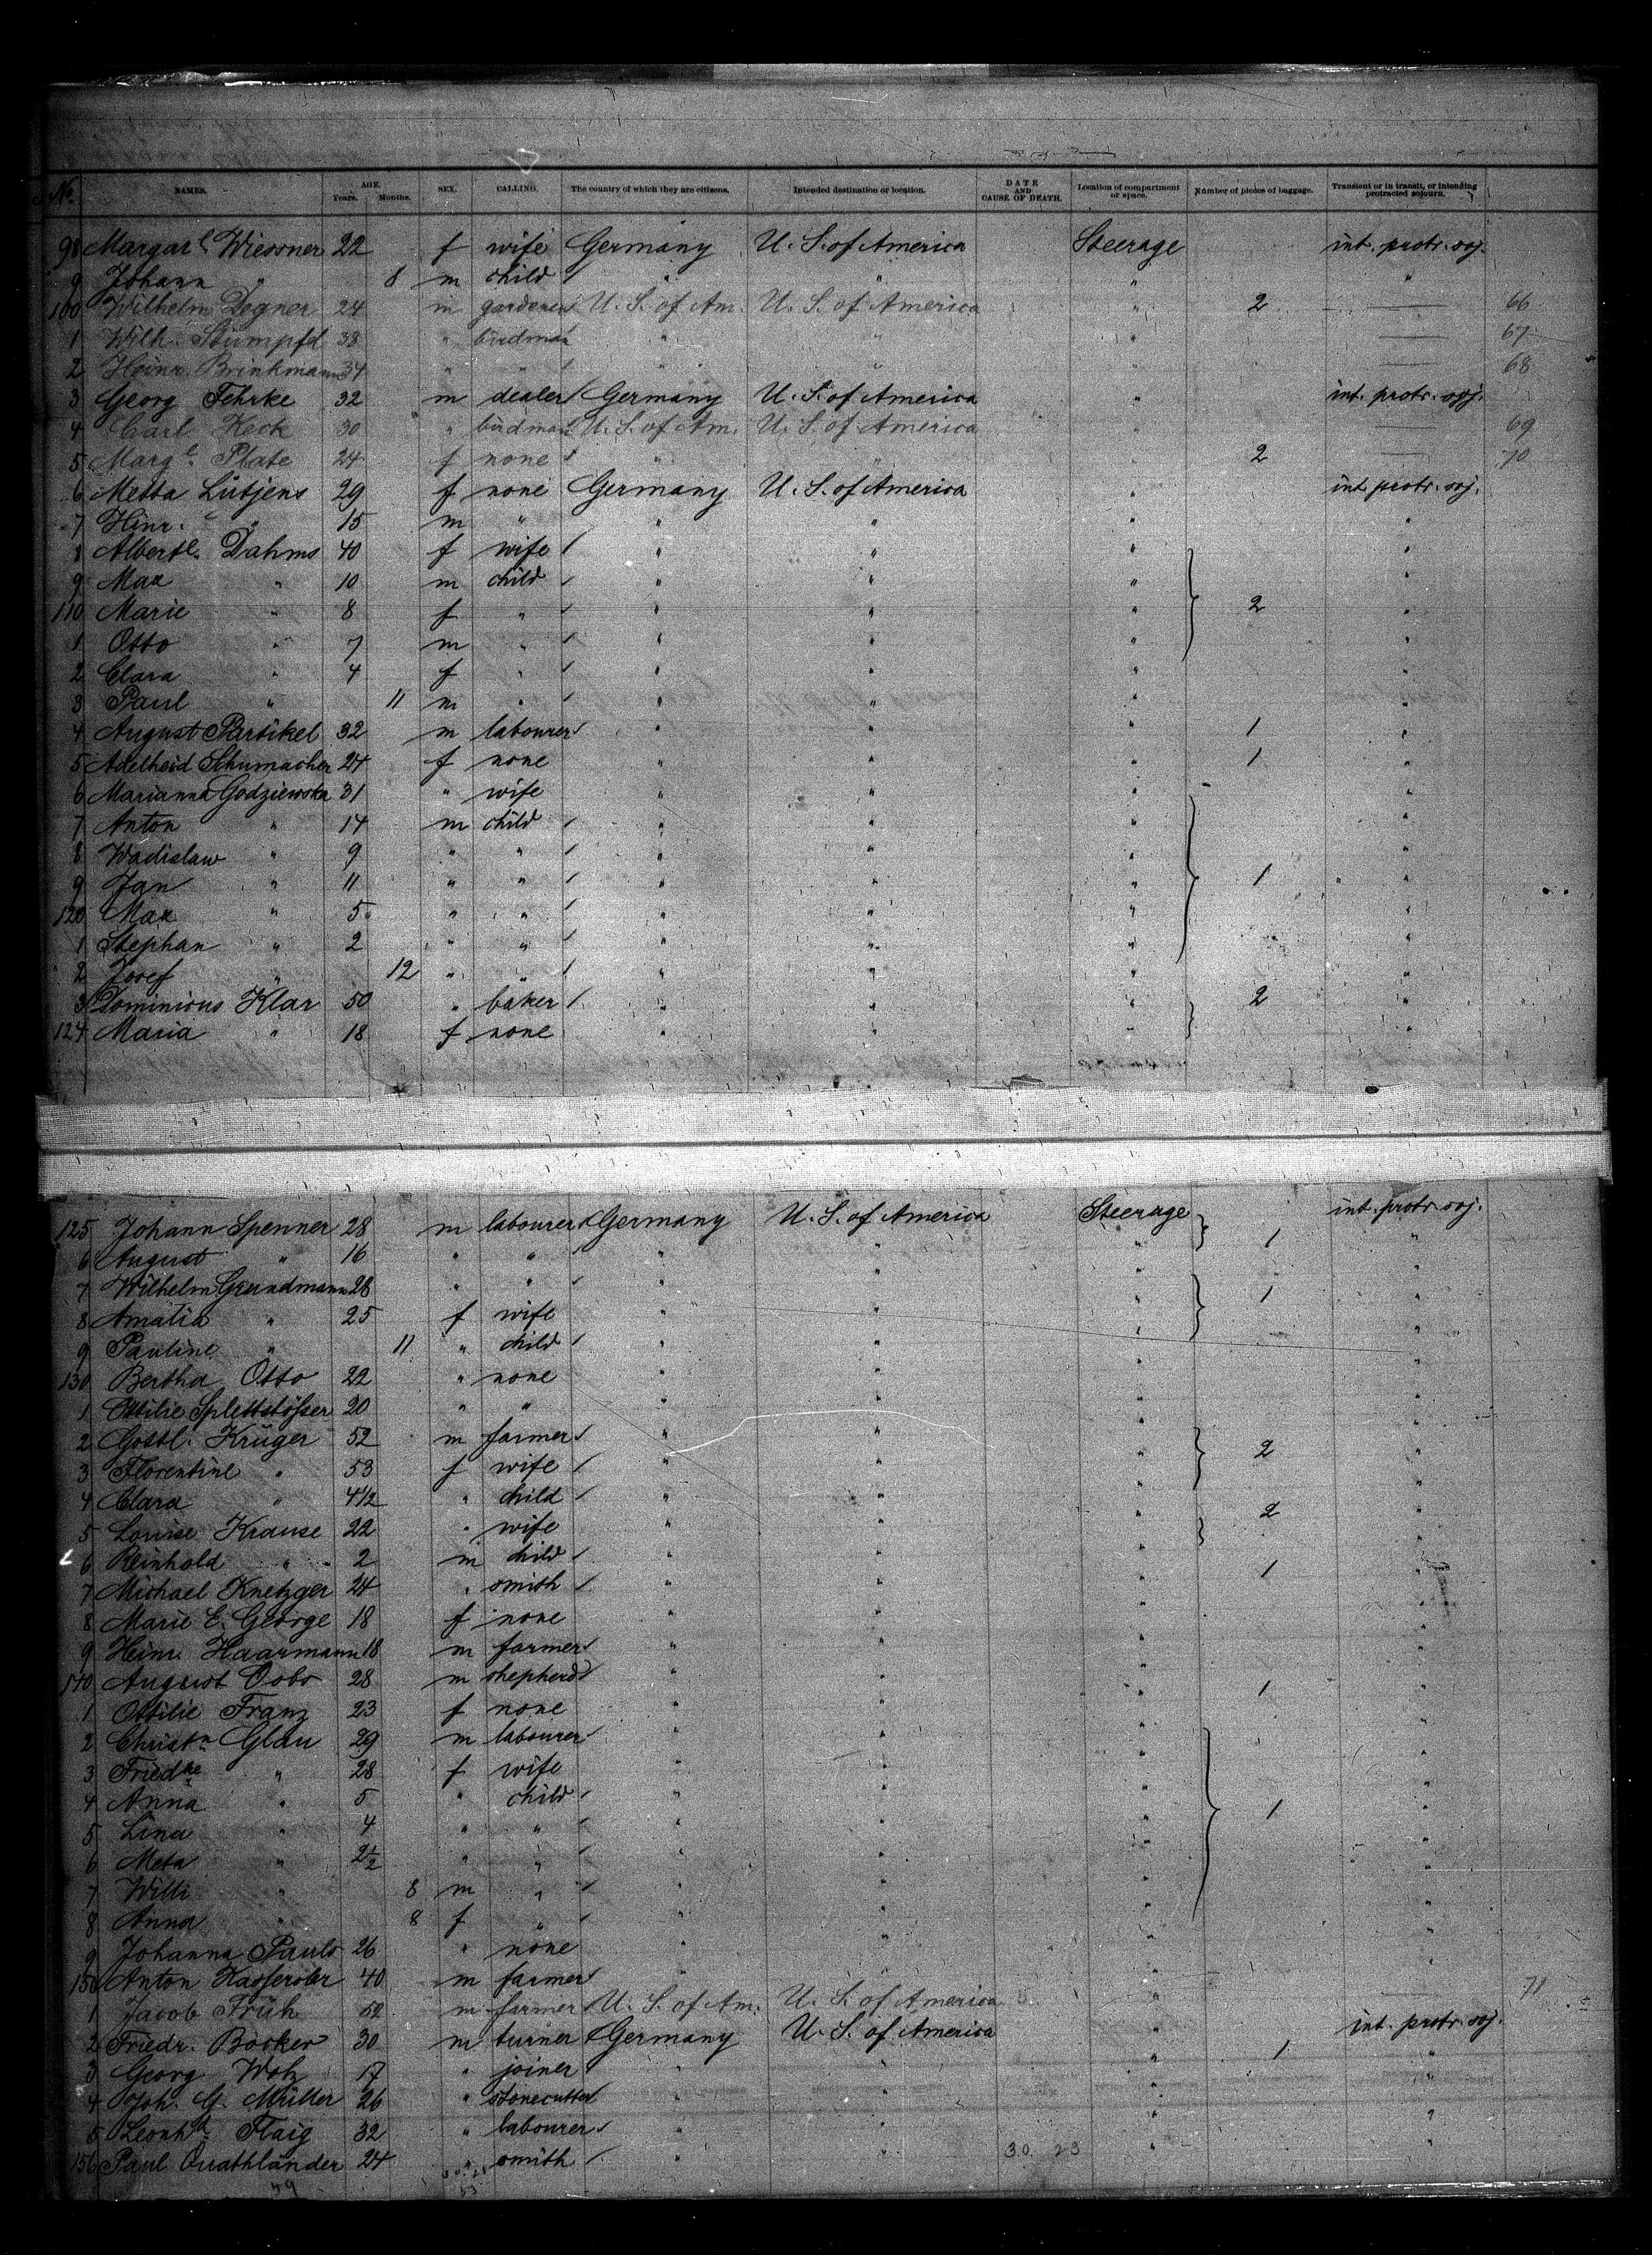 No. NAMES. AGE. Years. Months. SEX. CALLING. The country of which they are citizens. Intended destination or location. DATE AND CAUSE OF DEATH. Location of compartment or space. Number of pieces of baggage. Transient or in transit, or intending protracted sojourn.
98 Margar.e Wiessner 22 f wife Germany U. S. of America Steerage int. protr. soj.
9 Johann " 8 m child " " " "
100 Wilhelm Degner 24 m gardener U. S. of Am. U. S. of America " 2 — 66
1 Wilh. Stumpfd 38 " birdman " " " — 67
2 Heinr. Brinkmann 34 " " " " " — 68
3 Georg Fehrke 32 m dealer Germany U. S. of America " int. protr. soj.
4 Carl Keck 30 " birdman U. S. of Am. U. S. of America " — 69
5 Marg.e Plate 24 f none " " " 2 — 70
6 Metta Lütjens 29 f none Germany U. S. of America " int. protr. soj.
7 Hinr. " 15 m " " " " "
8 Albert.e Dahms 40 f wife " " " "
9 Max " 10 m child " " " "
110 Marie " 8 f " " " " 2 "
1 Otto " 7 m " " " " "
2 Clara " 4 f " " " " "
3 Paul " 11 m " " " " "
4 August Partikel 32 m labourer " " " 1 "
5 Adelheid Schumacher 24 f none " " " 1 "
6 Marianna Godziewska 31 " wife " " " "
7 Anton " 14 m child " " " "
8 Wadislaw " 9 " " " " " "
9 Jan " 11 " " " " " 1 "
120 Max " 5 " " " " " "
1 Stephan " 2 " " " " " "
2 Josef " 12 " " " " " "
3 Dominicus Klar 50 " baker " " " 2 "
124 Maria " 18 f none " " " "
125 Johann Spenner 28 m labourer Germany U. S. of America Steerage int. protr. soj.
6 August " 16 " " " " " 1 "
7 Wilhelm Grundmann 28 " " " " " 1 "
8 Amalia " 25 f wife " " " "
9 Pauline " 11 " child " " " "
130 Bertha Otto 22 " none " " " "
1 Ottilie Splettstößer 20 " " " " " "
2 Gottl. Krüger 52 m farmer " " " 2 "
3 Florentine " 53 f wife " " " "
4 Clara " 4 1/2 " child " " " "
5 Louise Krause 22 " wife " " " 2 "
6 Reinhold " 2 m child " " " "
7 Michael Knetzger 24 " smith " " " 1 "
8 Marie E. George 18 f none " " " "
9 Heinr. Haarmann 18 m farmer " " " "
140 August 28 m shepherd " " " "
1 Ottilie Franz 23 f none " " " 1 "
2 Christ.n Glau 29 m labourer " " " "
3 Fried.ke " 28 f wife " " " "
4 Anna " 5 " child " " " "
5 Lina " 4 " " " " " 1 "
6 Meta " 2 1/2 " " " " " "
7 Willi " 8 m " " " " "
8 Anna " 8 f " " " " "
9 Johanna Pauls 26 " none " " " "
150 Anton Kasseroler 40 m farmer " " " "
1 Jacob Früh 52 m farmer U. S. of Am. U. S. of America " 71
2 Friedr. Böcker 30 m turner Germany U. S. of America " int. protr. soj.
3 Georg 17 " joiner " " " 1 "
4 Joh. G. Müller 26 " stonecutter " " " "
5 Leonh.d Flaig 32 " labourer " " " "
156 Paul Quathländer 24 " smith " " 30. 23 " "